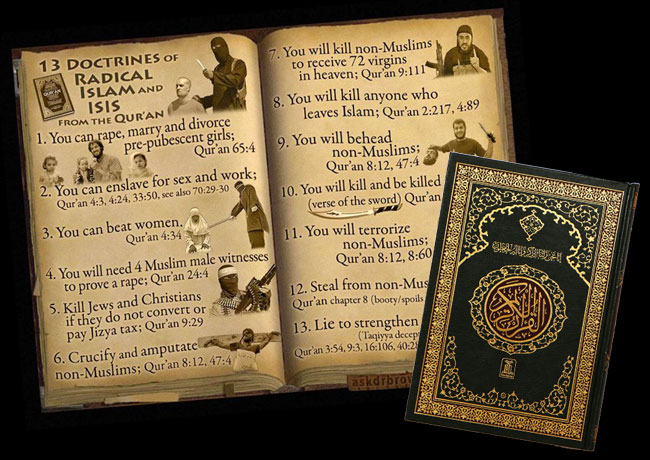 13 DOCTRINES OF
RADICAL
ISLAM AND
ISIS
FROM THE QUR'AN
1. You can rape, marry and divorce
pre-pubescent girls;
Qur'an 65:4
2. You can enslave for sex and work;
Qur'an 4:3, 4:24, 33:50, see also 70:29-30
3. You can beat women.
Qur'an 4:34
4. You will need 4 Muslim male witnesses
to prove a rape; Qur'an 24:4
5. Kill Jews and Christians
if they do not convert or
pay Jizya tax; Qur'an 9:29
6. Crucify and amputate
non-Muslims; Qur'an 8:12, 47:4
7. You will kill non-Muslims
to receive 72 virgins
in heaven; Qur'an 9:111
8. You will kill anyone who
leaves Islam; Qur'an 2:217, 4:89
9. You will behead
non-Muslims;
Qur'an 8:12, 47:4
10. You will kill and be killed
(verse of the sword) Qur'an
11. You will terrorize
non-Muslims;
Qur'an 8:12, 8:60
12. Steal from non-Mus
Qur'an chapter 8 (booty/spoils
13. Lie to strengthen
(Taqiyya decep
Qur'an 3:54, 9:3, 16:106, 40:28
askdrbrow
القرآن الكريم